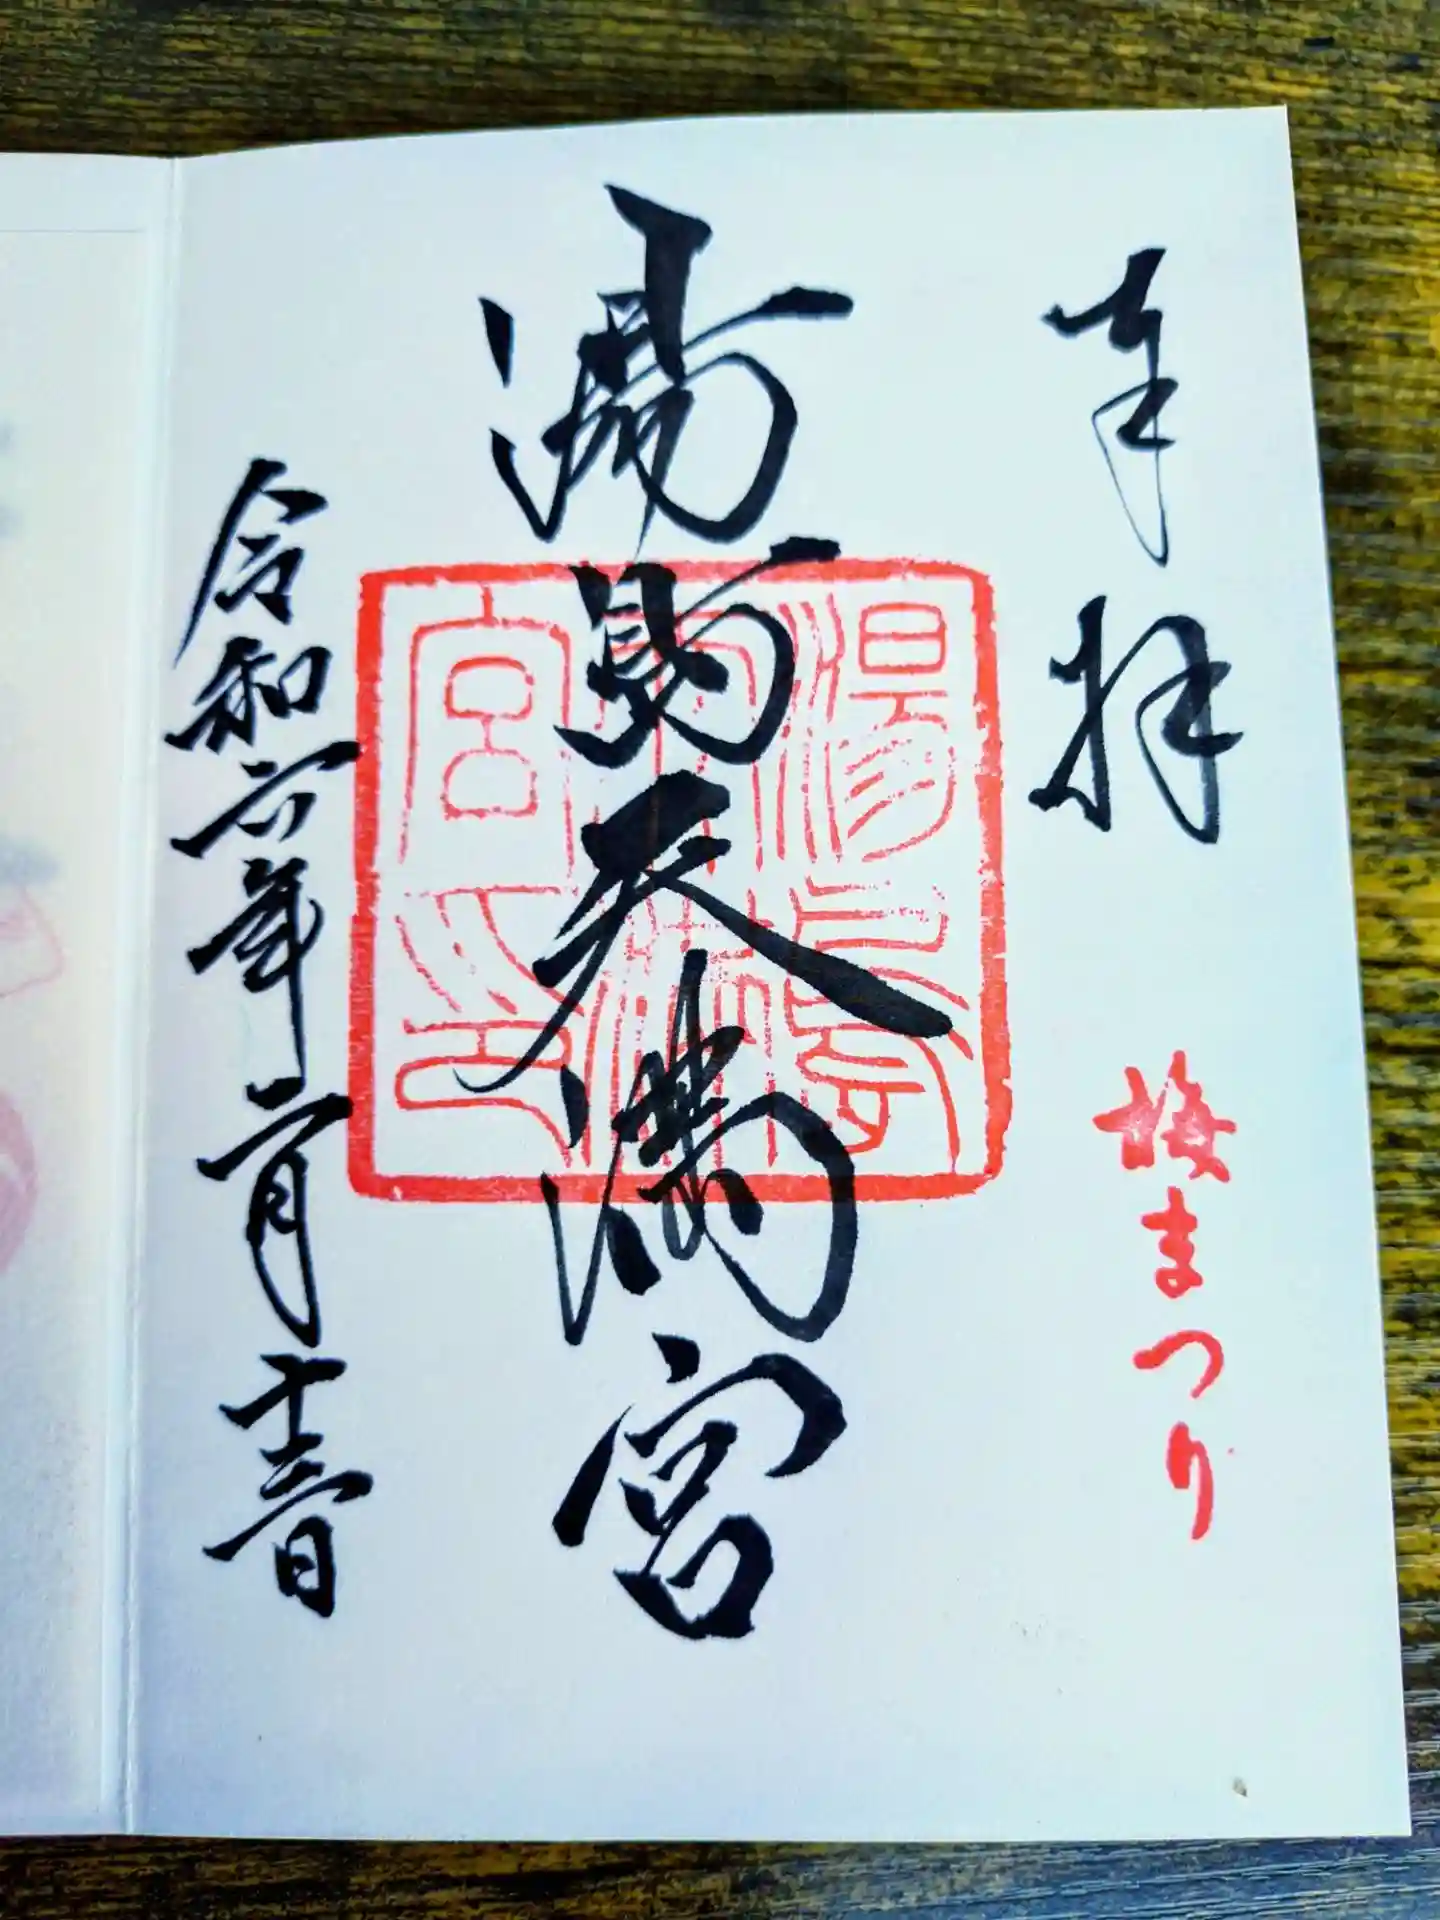 奉拝
梅まつり
湯島天満宮
湯島天満宮印
令和六年二月十三日